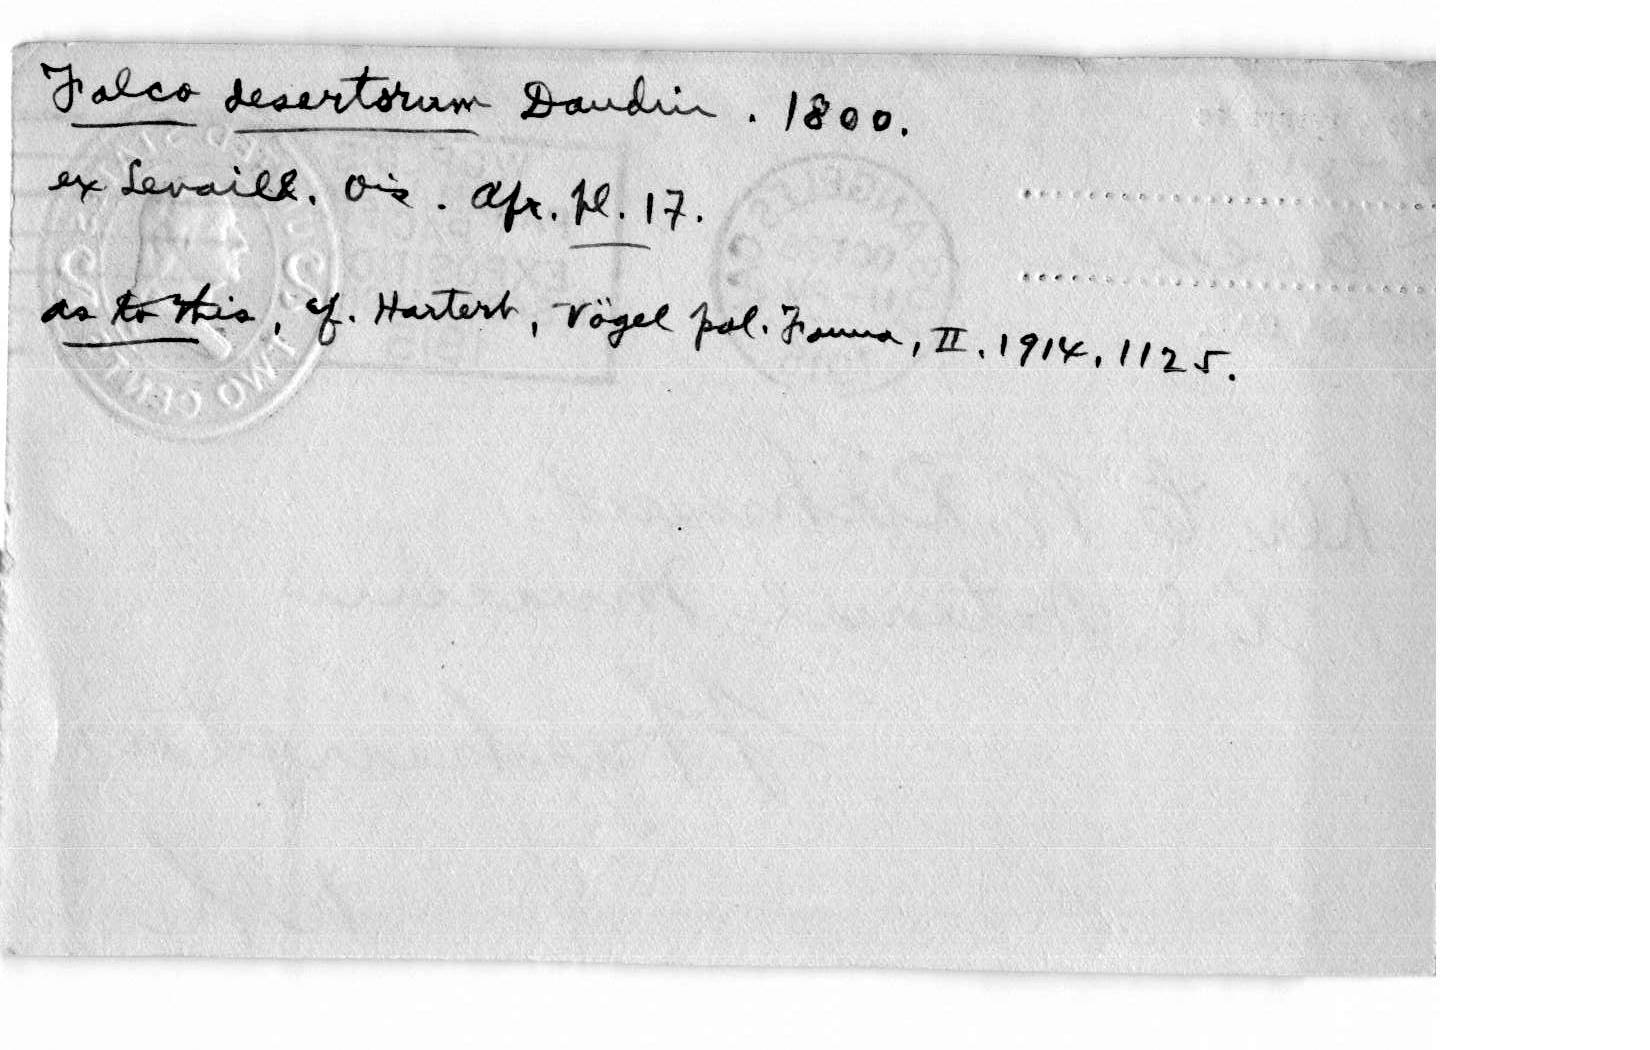 Falco desertorum Daudin. 1800.
ex Levaill. Ois. Afr. pl. 17.
as to this, cf. Hartert, Vögel pal. Fauna, II, 1914, 1125.